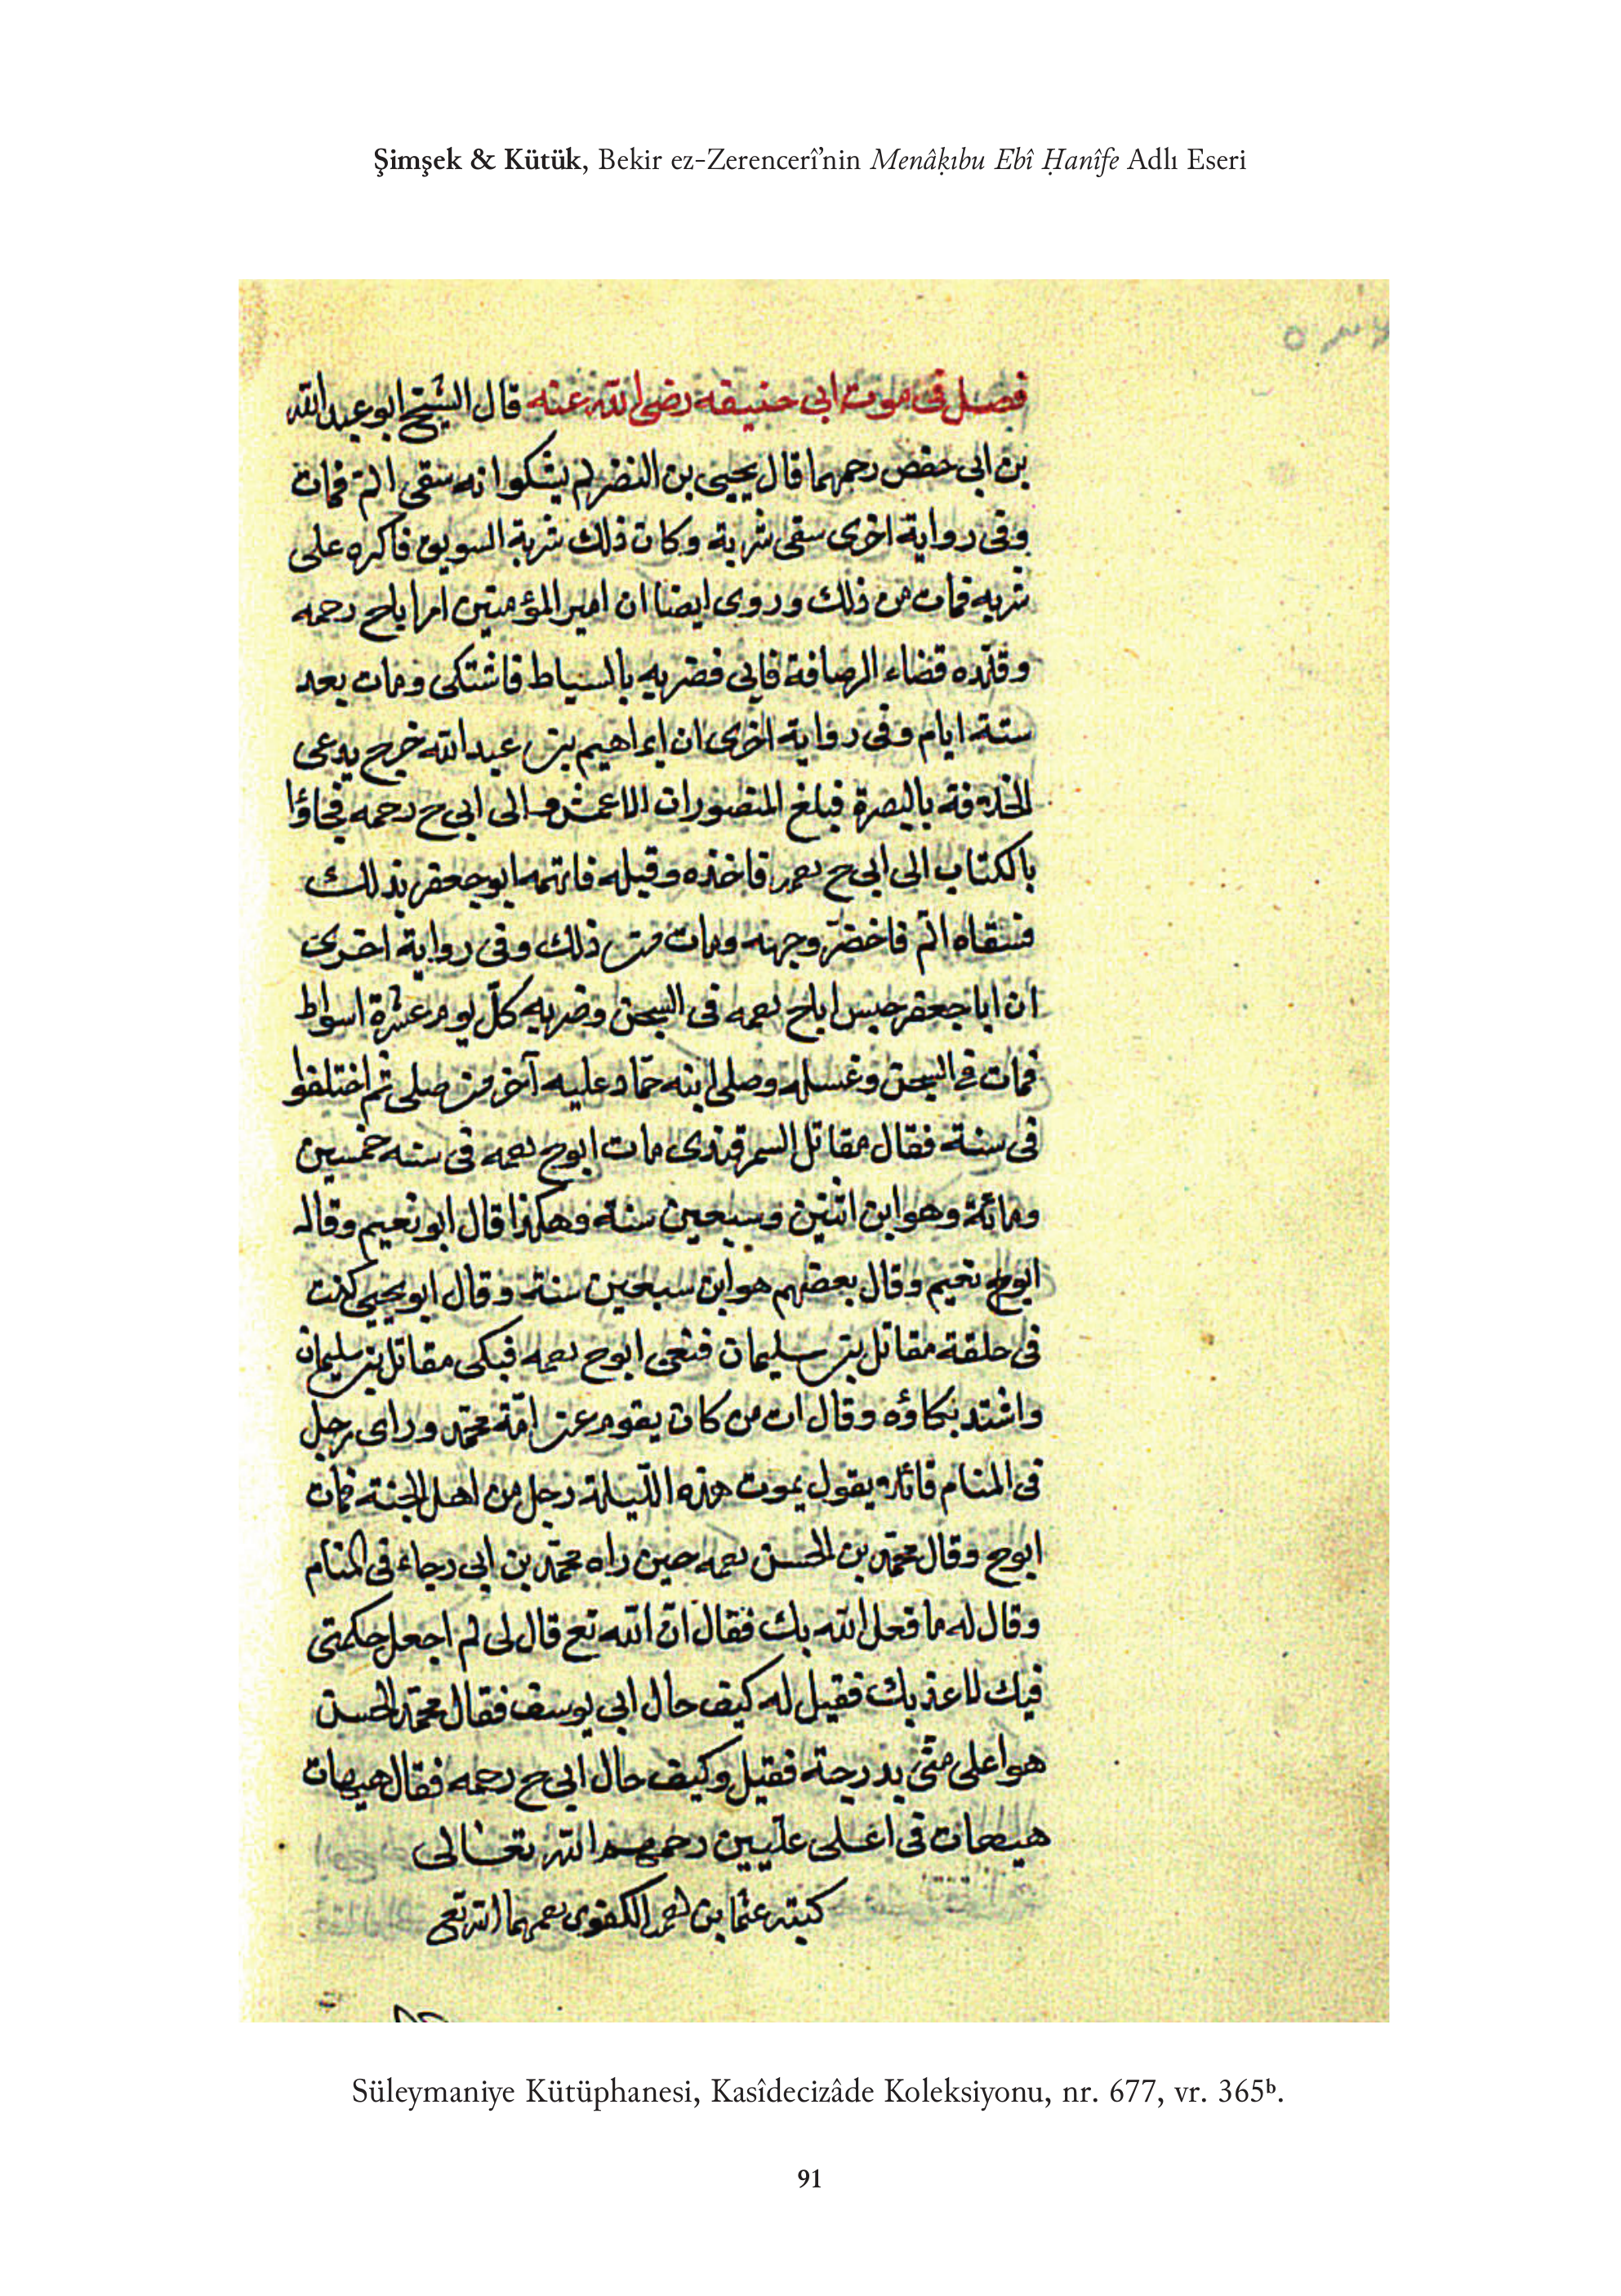 Şimşek & Kütük, Bekir ez-Zerencerî’nin Menâḳıbu Ebî Ḥanîfe Adlı Eseri
فصل فى موت ابى حنيفه رضى الله عنه قال الشيخ ابو عبد الله
بن ابى حفص رحمهما قال يحيى بن النضر لم يشكوا انه سقى السم فمات
وفى رواية اخرى سقى شربة وكان ذلك شربة السويق فاكره على
شربه فمات من ذلك وروى ايضا ان امير المؤمنين امر اباح رحمه
وقلّده قضاء الرصافة فابى فضربه بالسياط فاشتكى ومات بعد
ستة ايام وفى رواية اخرى ان ابراهيم بن عبد الله خرج يدعى
الخلافة بالبصرة فبلغ المنصور ان الاعمش والى ابى ح رحمه فجاؤا
بالكتاب الى ابى ح فاخذه وقبله فاتهمه ابو جعفر بذلك
فسقاه السم فاخضرّ وجهه ومات من ذلك وفى رواية اخرى
ان ابا جعفر حبس اباح رحمه فى السجن وضربه كلّ يوم عشرة اسواط
فمات فى السجن وغسله وصلى ابنه حمّاد عليه آخر من صلى ثم اختلفوا
فى سنة فقال مقاتل السمرقندى مات ابوح رحمه فى سنه خمسين
ومائة وهو ابن اثنين وسبعين سنة وهكذا قال ابو نعيم وقال
ابوح نعيم وقال بعضهم هو ابن سبعين سنة وقال ابو يحيى كنت
فى حلقة مقاتل بن سليمان فنعى ابوح رحمه فبكى مقاتل بن سليمان
واشتد بكاؤه وقال ات من كان يقوم عن امّة محمّد وراى رجل
فى المنام قائلا يقول يموت هذه الليلة رجل من اهل الجنة فمات
ابوح وقال محمّد بن الحسن رحمه حين راه محمّد بن ابى رجاء فى المنام
وقال له ما فعل الله بك فقال انّ الله تع قال لى لم اجعل حكمتى
فيك لاعذبك فقيل له كيف حال ابى يوسف فقال محمّد الحسن
هو اعلى منّى بدرجة فقيل وكيف حال ابى ح رحمه فقال هيهات
هيهات فى اعلى علّيين رحمهم الله تعالى
كتبه عثمان بن الكفوى رحمهما الله تع
Süleymaniye Kütüphanesi, Kasîdecizâde Koleksiyonu, nr. 677, vr. 365ᵇ.
91